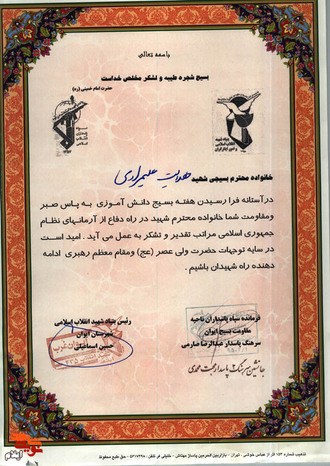 باسمه تعالی
بسیج شجره طیبه و لشکر مخلص خداست
حضرت امام خمینی (ره)
بنیاد شهید
انقلاب اسلامی
خانواده محترم بسیجی شهید هدایت علیمرادی
در آستانه فرا رسیدن هفته بسیج دانش آموزی به پاس صبر
ومقاومت شما خانواده محترم شهید در راه دفاع از آرمانهای نظام
جمهوری اسلامی مراتب تقدیر و تشکر به عمل می آید . امید است
در سایه توجهات حضرت ولی عصر (عج) ومقام معظم رهبری ادامه
دهنده راه شهیدان باشیم .
فرمانده سپاه پاسداران ناحیه
مقاومت بسیج ایوان
سرهنگ پاسدار عبدالرضا صارمی
جانشین سرهنگ پاسدار
رئیس بنیاد شهید انقلاب اسلامی
شهرستان ایوان
حسین اسماعیلی